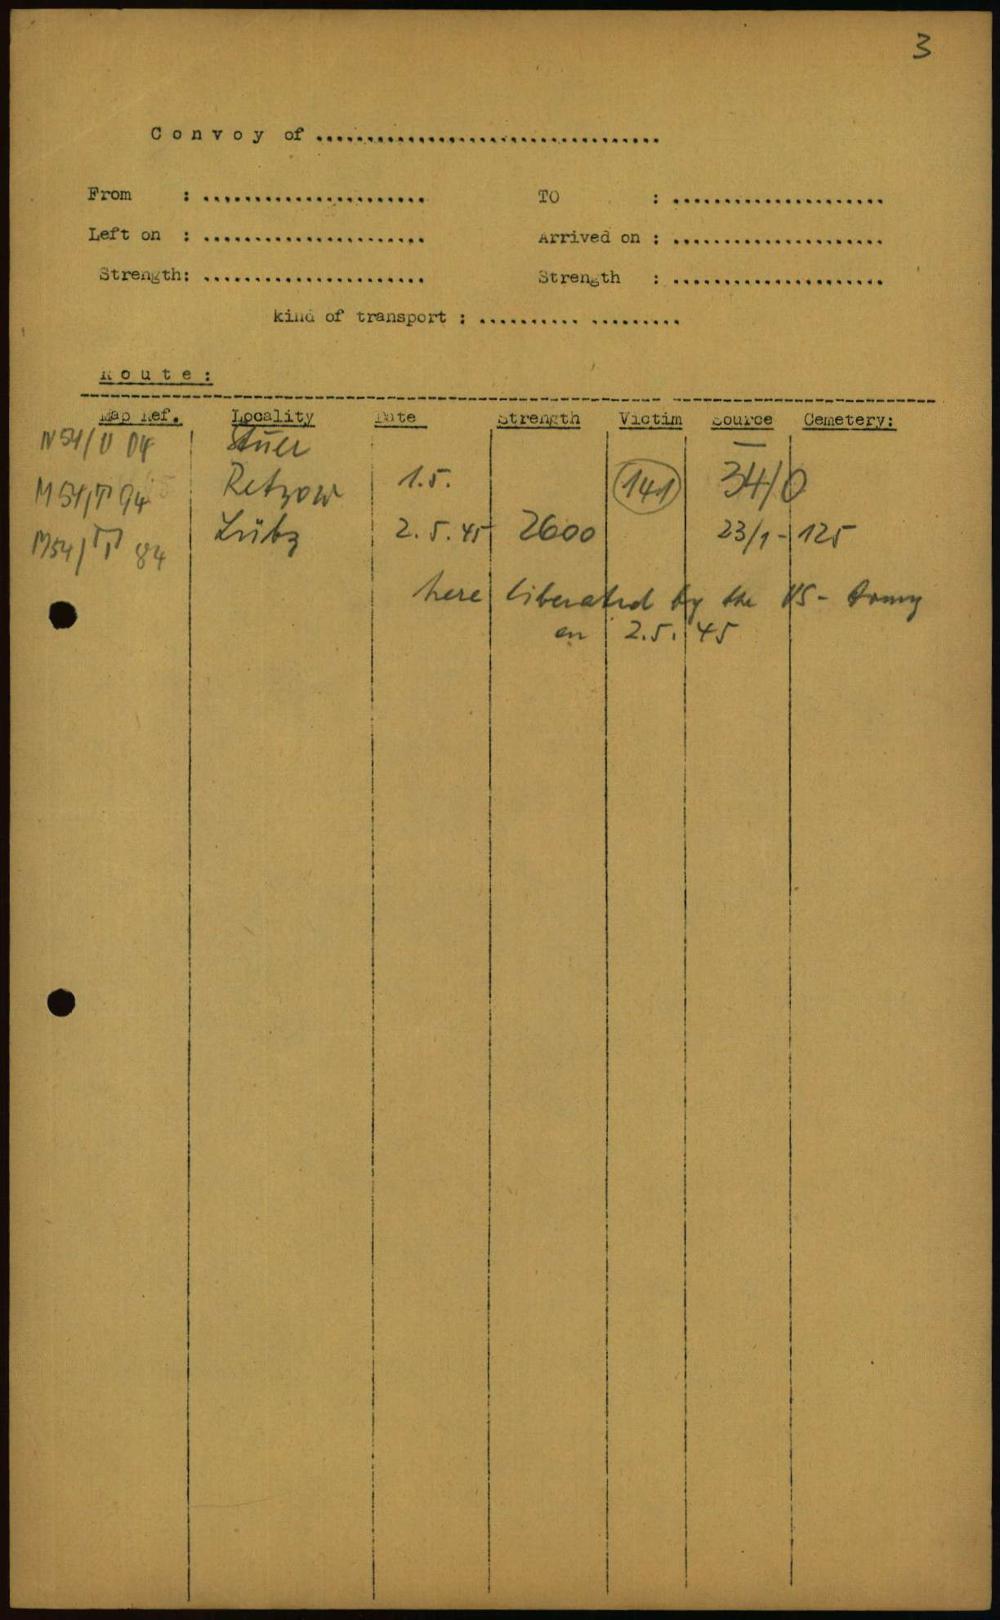 3
Convoy of ..................................
From : ...................... TO : .....................
Left on : ...................... Arrived on : .....................
Strength: ...................... Strength : .....................
kind of transport : .......... .........
Route:
Map Ref. Locality Date Strength Victim Source Cemetery:
Stuer —
Retzow 1.5. 141 34/0
M54/ 84 Lübz 2.5.45 2600 23/1-125
here liberated by the US-Army
on 2.5.45